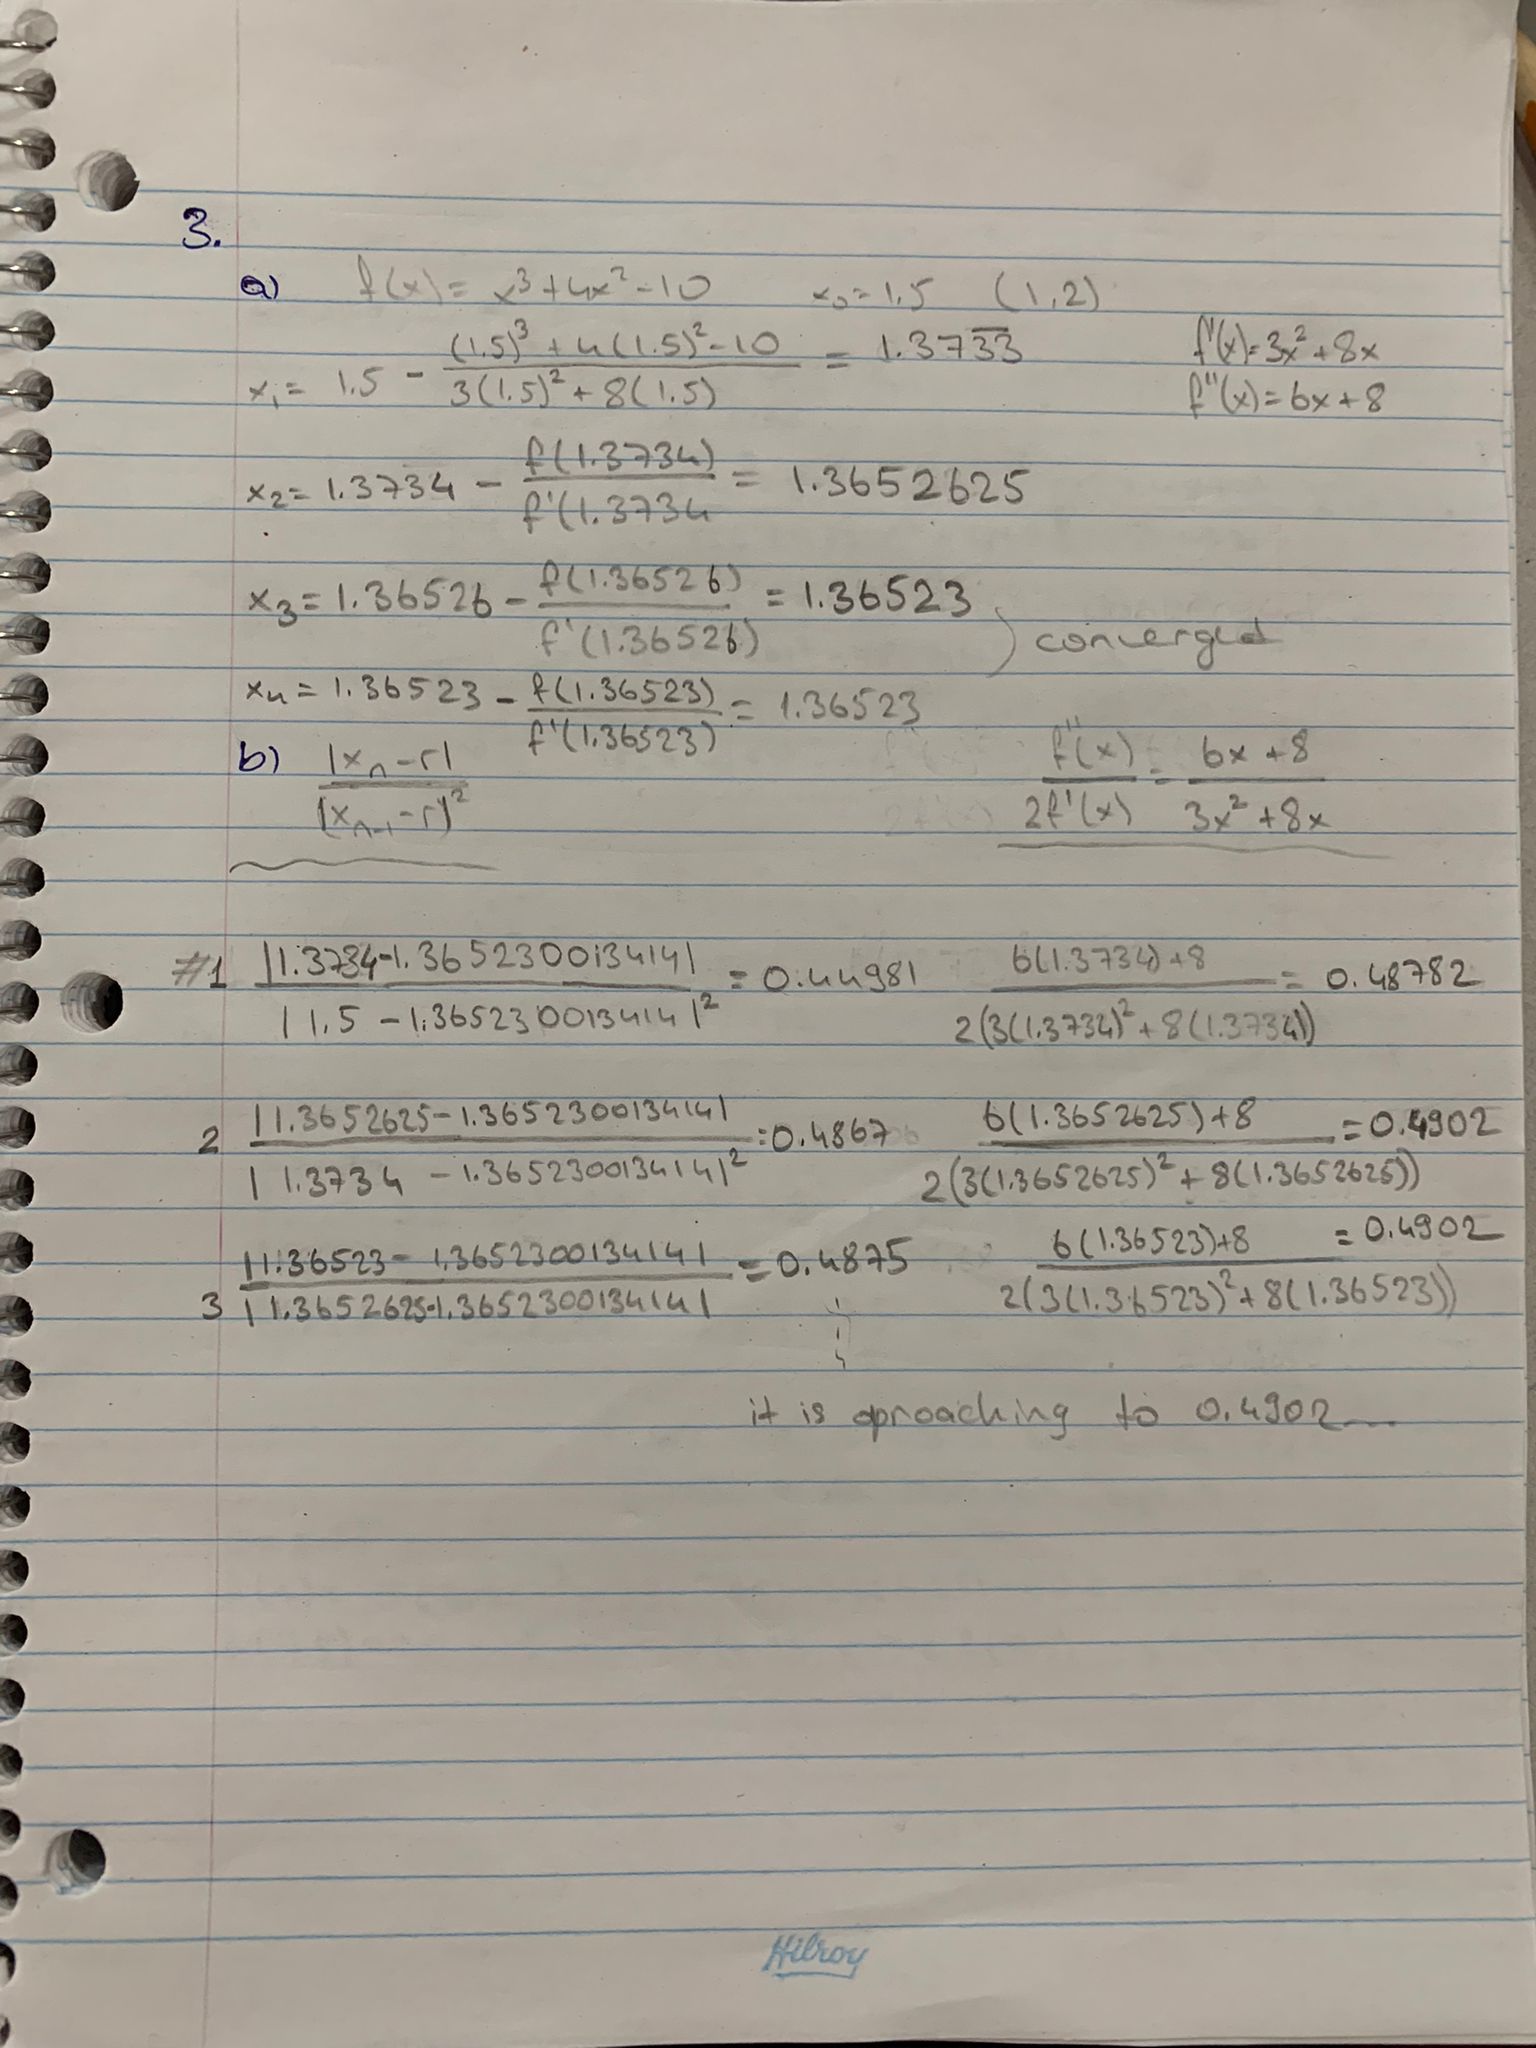 3.
a) f(x) = x³+4x²-10 x₀=1.5 (1,2)
x₁= 1.5 - ((1.5)³+4(1.5)²-10)/(3(1.5)²+8(1.5)) = 1.373̅3̅ f'(x)=3x²+8x
f''(x)=6x+8
x₂=1.3734 - f(1.3734)/f'(1.3734 = 1.3652625
x₃=1.36526 - f(1.36526)/f'(1.36526) = 1.36523
) converged
x₄=1.36523 - f(1.36523)/f'(1.36523) = 1.36523
b) |xₙ-r|/|xₙ₋₁-r|² f''(x)/2f'(x) = 6x+8/3x²+8x
#1 |1.3734-1.3652300134141|/|1.5-1.3652300134141|² = 0.44981 6(1.3734)+8/2(3(1.3734)²+8(1.3734)) = 0.48782
2 |1.3652625-1.3652300134141|/|1.3734-1.3652300134141|² = 0.4867 6(1.3652625)+8/2(3(1.3652625)²+8(1.3652625)) = 0.4902
3 |1.36523-1.3652300134141|/|1.3652625-1.3652300134141| = 0.4875 6(1.36523)+8/2(3(1.36523)²+8(1.36523)) = 0.4902
it is aproaching to 0.4902...
Hilroy